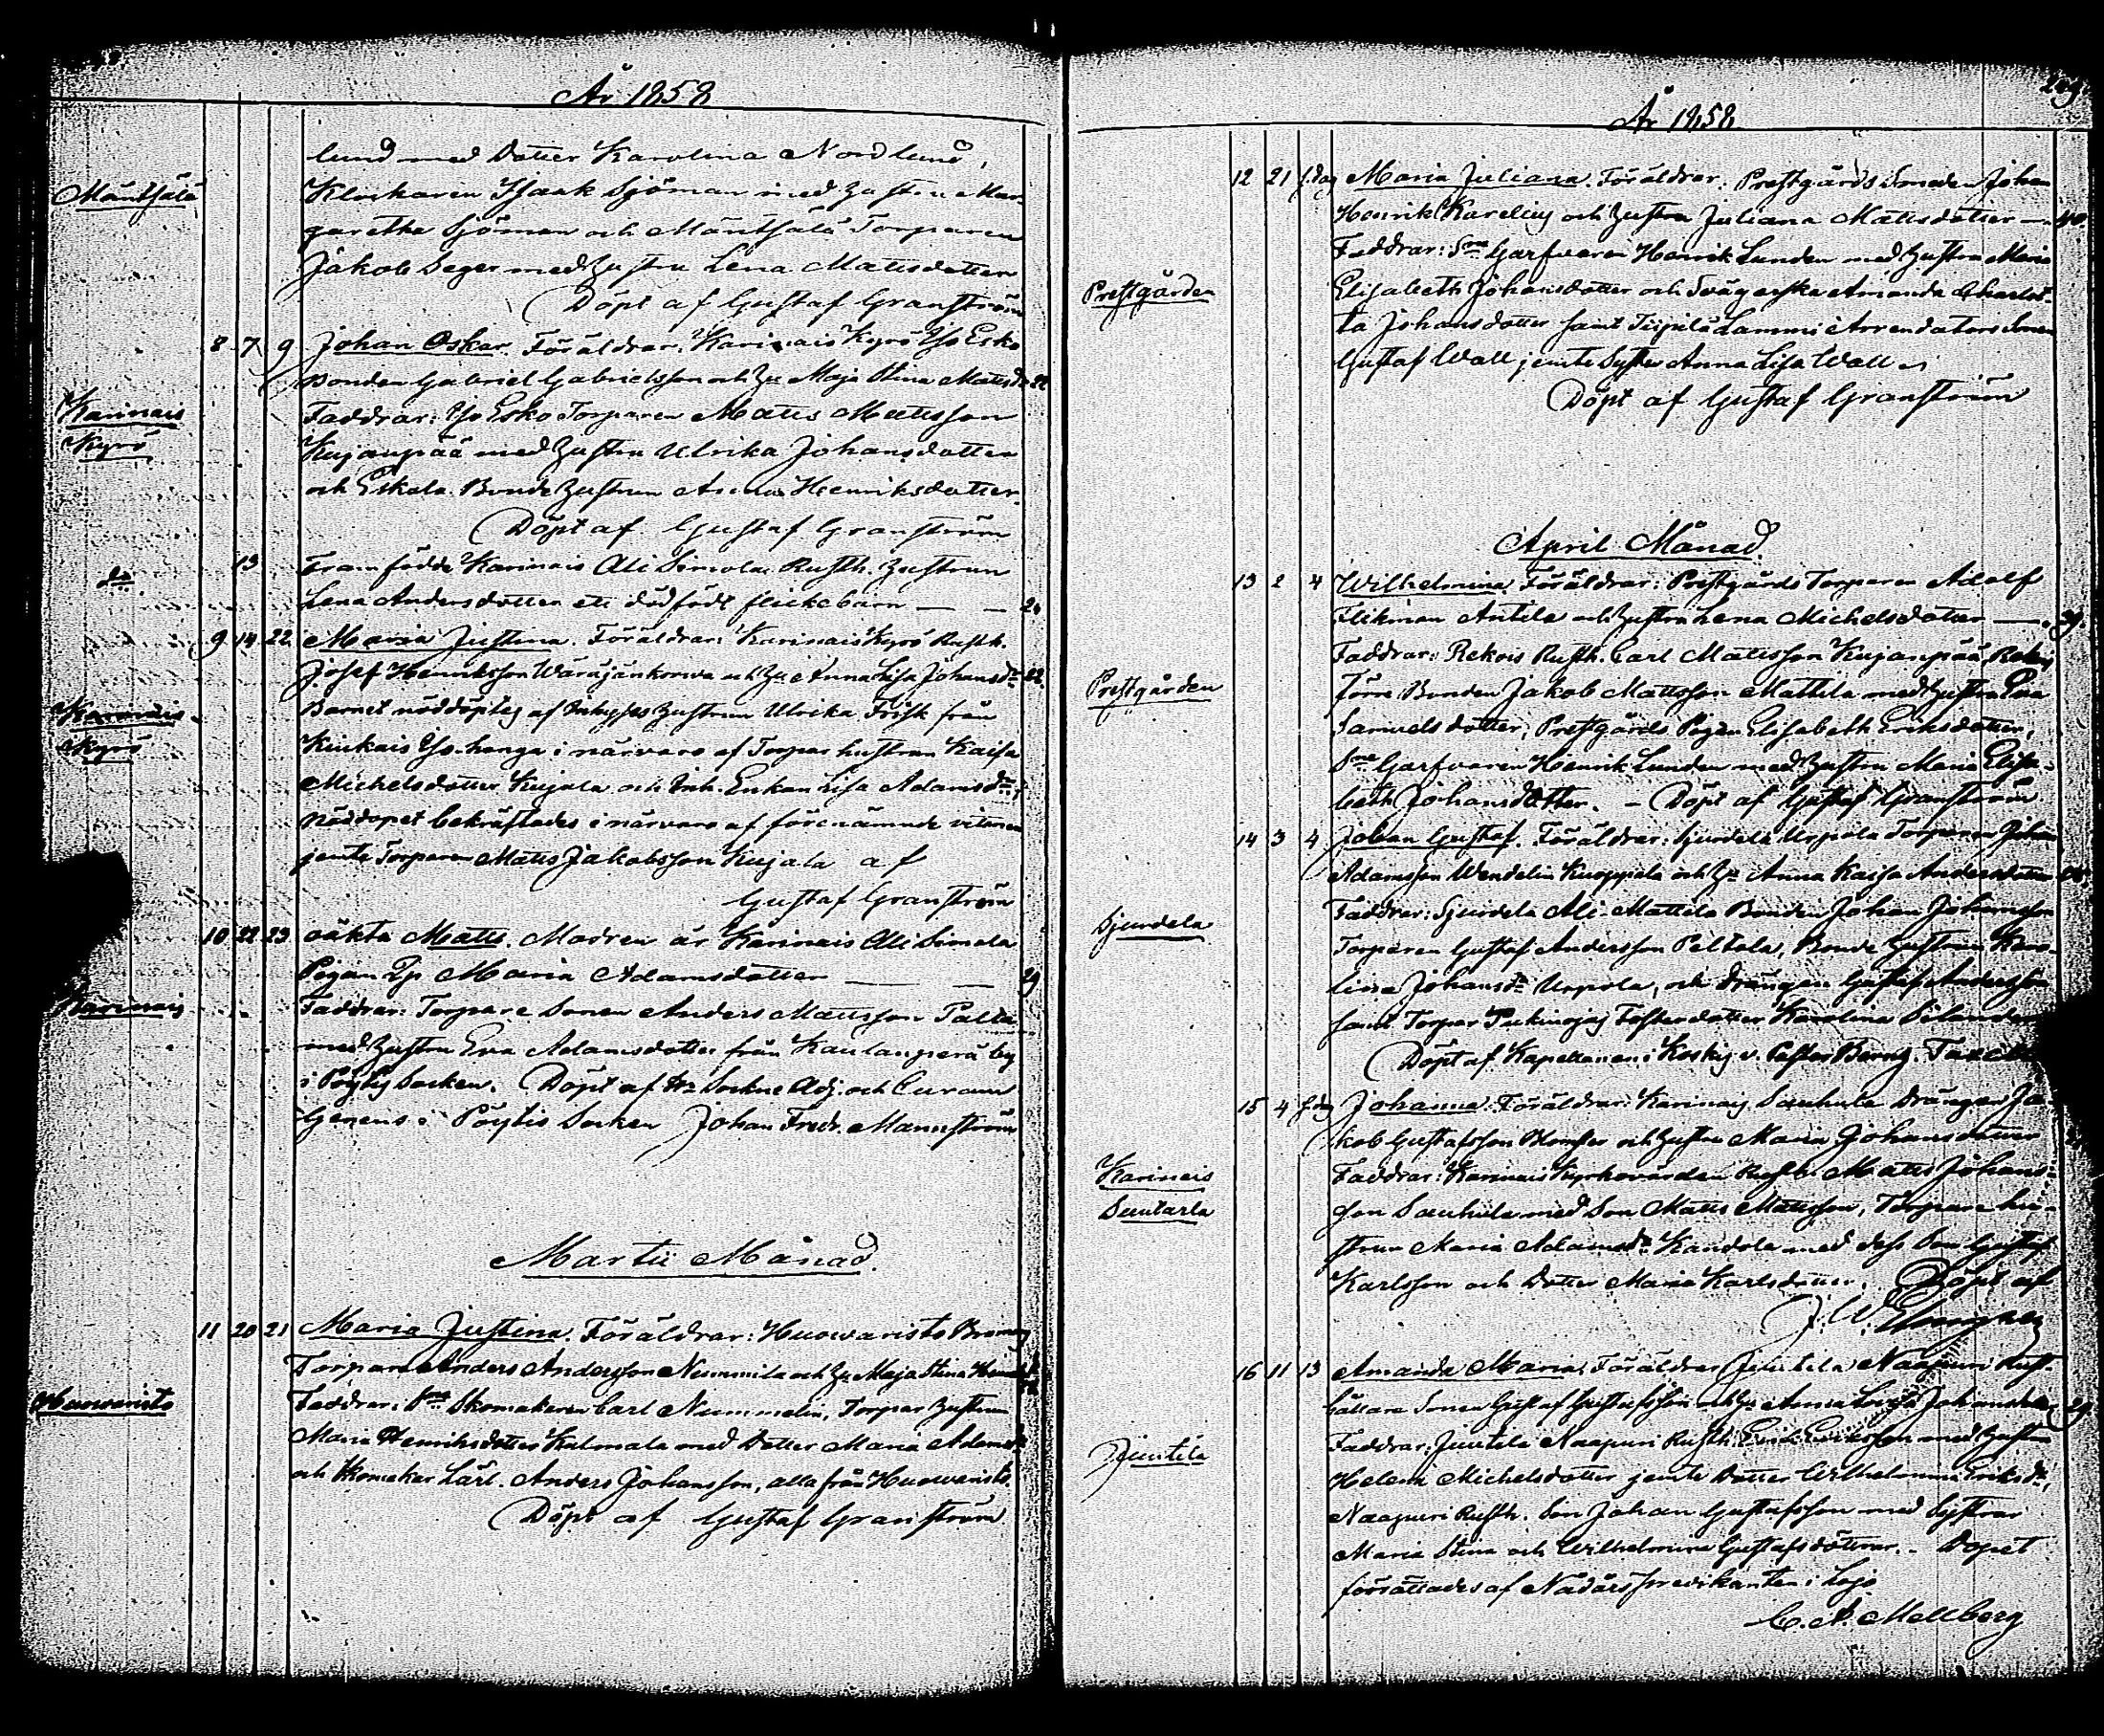 År 1858
lund med Dotter Karolina Nordlund,
Mäntsälä
Klockaren Isaak Sjöman med Hustru Mar-
garetha Sjöman och Mäntsälä Torparen
Jakob Seger med Hustru Lena Mattsdotter
Döpt af Gustaf Granström
8 7 9 Johan Oskar. Föräldrar: Karinais Kyrö Yso Esko
Bonden Gabriel Gabrielsson och Hu Maja Stina Mattsdr 22
Karinais
Faddrar: Yso Esko Torparen Matts Mattsson
Kyrö
Kujanpää med Hustru Ulrika Johansdotter
och Eskola Bonde Hustrun Anna Henriksdotter.
Döpt af Gustaf Granström
do 13 Framfödde Karinais Ali Simola Rusth. Hustrun
Lena Andersdotter ett dödfödt flickebarn — —
9 14 22 Maria Justina. Föräldrar: Karinais Kyrö Rusth.
Josef Henriksson Wäräjänkorwa och Hu Anna Lisa Johansdr 22.
Karinais
Barnet nöddöptes af Inhyses Hustrun Ulrika Frisk från
Kyrö
Kiukais Iso-hanga i närvaro af Torpar hustrun Kaisa
Michelsdotter Kujala och Inh. Enkan Lisa Adamsdr,
Nöddopet bekräftades i närvaro af förenämnde vittnen
jemte Torparen Matts Jakobsson Kujala af
Gustaf Granström
10 22 23 oäkta Matts. Modren är Karinais Ali Simola
Pigan Maria Adamsdotter — — 29
Karinais
Faddrar: Torpare Sonen Anders Mattsson Palta
med Hustru Eva Adamsdotter från Kaulanperä by
i Pöytis Socken. Döpt af Adj. och Curam
Gerens i Pöytis Socken Johan Fredr. Mannström
Martii Månad.
11 20 21 Maria Justina. Föräldrar: Huowaristo
Torparen Anders Andersson Nummila och Hu Maja Stina
Huowaristo
Faddrar: Skomakaren Carl Nummelin, Torpar Hustrun
Maria Henriksdotter Kalmala med Dotter Maria
och Skomakar Lärl. Anders Johansson, alla från Huowaristo.
Döpt af Gustaf Granström
År 1858
12 21 s.dag Maria Juliana. Föräldrar: Prestgårds Smeden Johan
Henrik Karelius och Hustru Juliana Mattsdotter — 40.
Faddrar: Garfvaren Henrik Lunden med Hustru Maria
Prestgården
Elisabeth Johansdotter och Svägerska Amanda Charlot-
ta Johansdotter samt Lammi Arrendators Sonen
Gustaf Wall jemte Syster Anna Lisa Wall
Döpt af Gustaf Granström
April Månad
13 2 4 Wilhelmina. Föräldrar: Prestgårds Torparen Adolf
Flikman Antila och Hustru Lena Michelsdotter — 39.
Faddrar: Rekois Rusth. Carl Mattsson Kujanpää,
Prestgården
Förre Bonden Jakob Mattsson Mattila med Hustru Eva
Samuelsdotter, Prestgårds Pigan Elisabeth Eriksdotter,
Garfvaren Henrik Lunden med Hustru Maria Elisa-
beth Johansdotter. - Döpt af Gustaf Granström
14 3 4 Johan Gustaf. Föräldrar: Sjundela Uspola Torparen Johan
Adamsson Wendelin Kuoppala och Hu Anna Kaisa Andersdotter
Sjundela
Faddrar: Sjundela Ali-Mattila Bonden Johan Johansson
Torparen Gustaf Andersson Peltola, Bonde Hustrun Karo-
lina Johansdr Uspola, och Drängen Gustaf Andersson
samt Torpar Fosterdotter Karolina
Döpt af Kapellanen i Koskis v. Pastor
15 4 s.dag Johanna. Föräldrar: Karinais Sauhula Drängen Ja-
kob Gustafsson och Hustru Maria Johansdotter
Karinais
Faddrar: Karinais Kyrkovärden Rusth. Matts Johans-
Suutarla
son Sauhula med Son Matts Mattsson, Torpare hu-
strun Maria Adamsdr Kandola med dess Son Gustaf
Karlsson och Dotter Maria Karlsdotter. Döpt af
16 11 13 Amanda Maria. Föräldrar: Juntila Naapuri Rust-
hållare Sonen Gustaf Gustafsson och Hu Anna Lovisa Johansdotter 29
Juntila
Faddrar: Juntila Naapuri Rusth. Erik Eriksson med Hustru
Helena Michelsdotter jemte Dotter Wilhelmina Eriksdr,
Naapuri Rusth. Son Johan Gustafsson med Systrar
Maria Stina och Wilhelmina Gustafsdöttrar. - Dopet
förrättades af Nådårspredikanten i Lojo
C. A. Mellberg